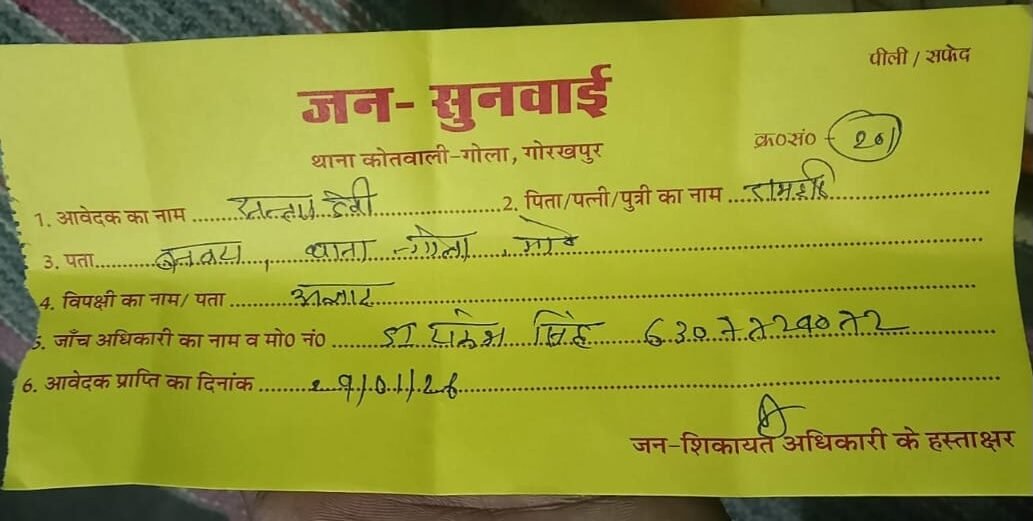 पीली / सफेद
जन- सुनवाई
थाना कोतवाली-गोला, गोरखपुर
क्र०सं० - 201
1. आवेदक का नाम ..... देवी ..... 2. पिता/पत्नी/पुत्री का नाम .....
3. पता ..... थाना - गोला .....
4. विपक्षी का नाम/ पता .....
5. जाँच अधिकारी का नाम व मो० नं० ..... सिंह .....
6. आवेदक प्राप्ति का दिनांक ..... 29/01/26 .....
जन-शिकायत अधिकारी के हस्ताक्षर